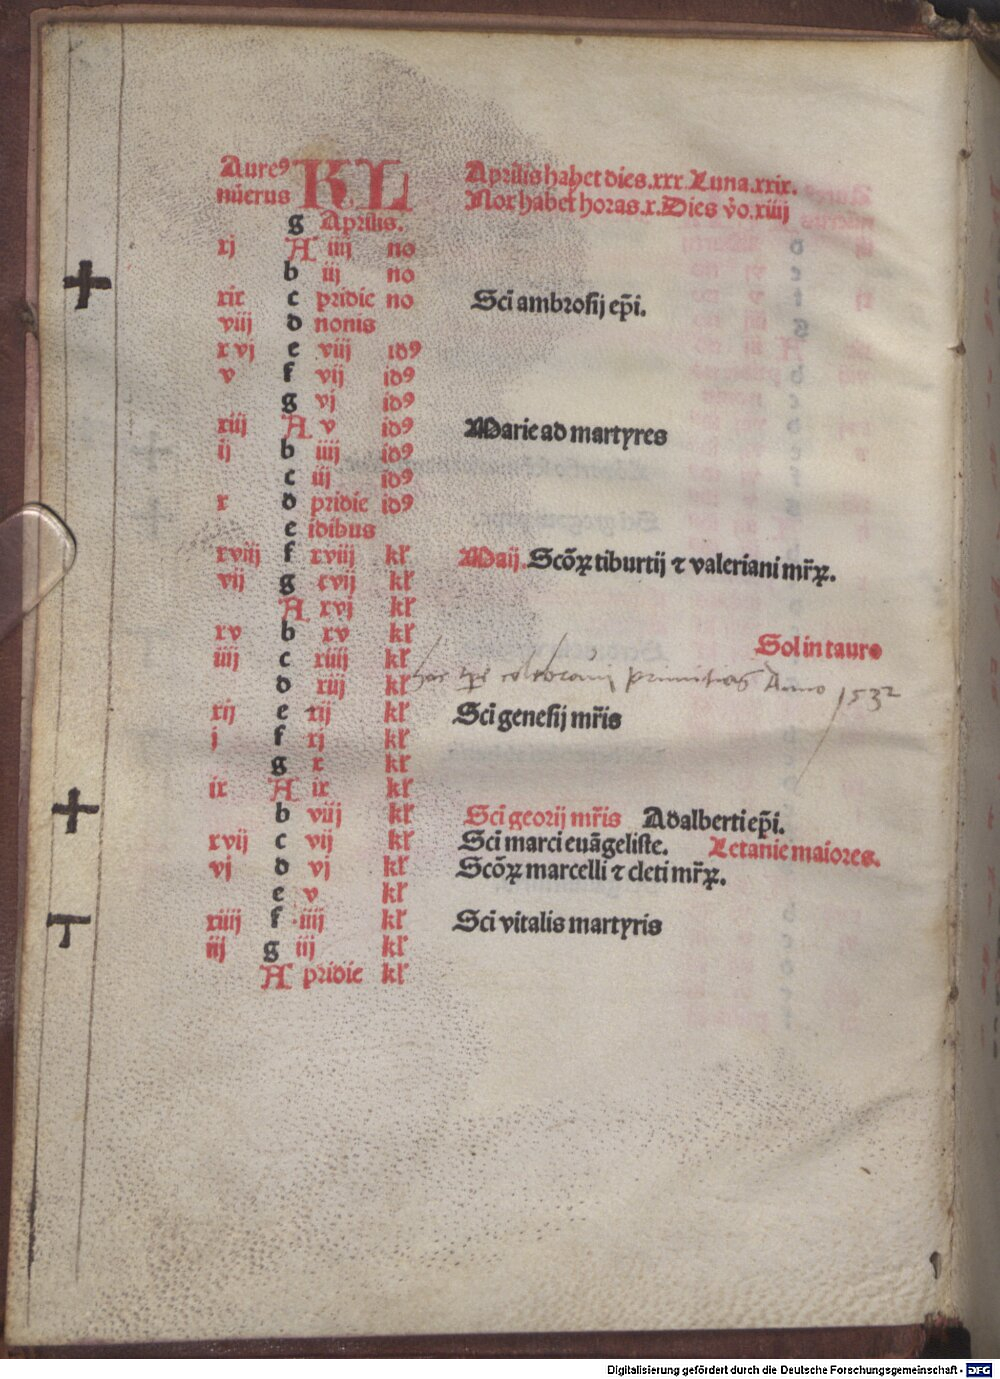 Aureꝰ KL Aprilis habet dies.xxx.Luna.xxix.
nūerus Nox habet horas.x.Dies v̊o.xiiij
g Aprilis.
xj A iiij no
b iij no
xix c pridie no Sc̄i ambrosij ep̄i.
viij d nonis
xvj e viij idꝰ
v f vij idꝰ
g vj idꝰ
xiij A v idꝰ Marie ad martyres
ij b iiij idꝰ
c iij idꝰ
x d pridie idꝰ
e idibus
xviij f xviij kl̄ Maij. Scōꝝ tiburtij ⁊ valeriani mr̄ꝝ.
vij g xvij kl̄
A xvj kl̄
xv b xv kl̄ Sol in tauro
iiij c xiiij kl̄
d xiij kl̄ primitias Anno 1532
xij e xij kl̄ Sc̄i genesij mr̄is
j f xj kl̄
g x kl̄
ix A ix kl̄
b viij kl̄ Sc̄i georij mr̄is Adalberti ep̄i.
xvij c vij kl̄ Sc̄i marci euāgeliste. Letanie maiores.
vj d vj kl̄ Scōꝝ marcelli ⁊ cleti mr̄ꝝ.
e v kl̄
xiiij f iiij kl̄ Sc̄i vitalis martyris
iij g iij kl̄
A pridie kl̄
Digitalisierung gefördert durch die Deutsche Forschungsgemeinschaft - DFG